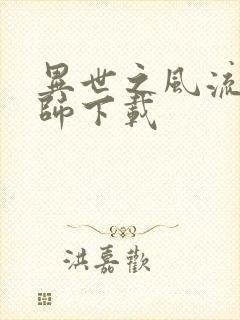 異世之風流
師下載
洪嘉歡